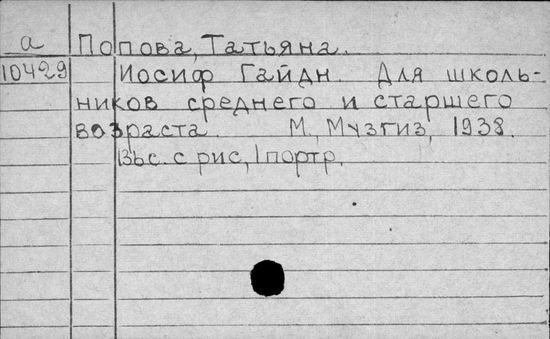 а Попова, Татьяна.
10429 Иосиф Гайдн. Для школь-
ников среднего и старшего
возраста. М., Музгиз, 1938.
136с. с рис, 1 портр.